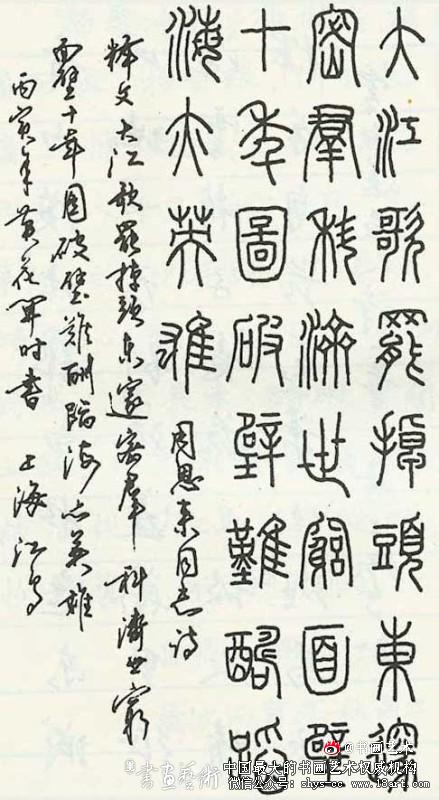 大江歌罷掉頭東邃
密羣科濟世窮面壁
十年圖破壁難酬蹈
海亦英雄
周恩来同志诗
释文大江歌罢掉頭东邃密羣科濟世窮
面壁十年图破壁难酬蹈海亦英雄
丙寅年黄花開时书 上海江
@书画艺术
書画藝術
中国最大的书画艺术权威机构
微信公众号：shys-cc www.18art.com